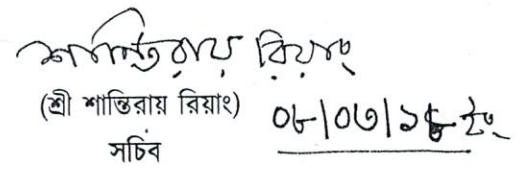 শান্তিরায় রিয়াং
(শ্রী শান্তিরায় রিয়াং)
সচিব
০৮|০৩|১৮ ইং